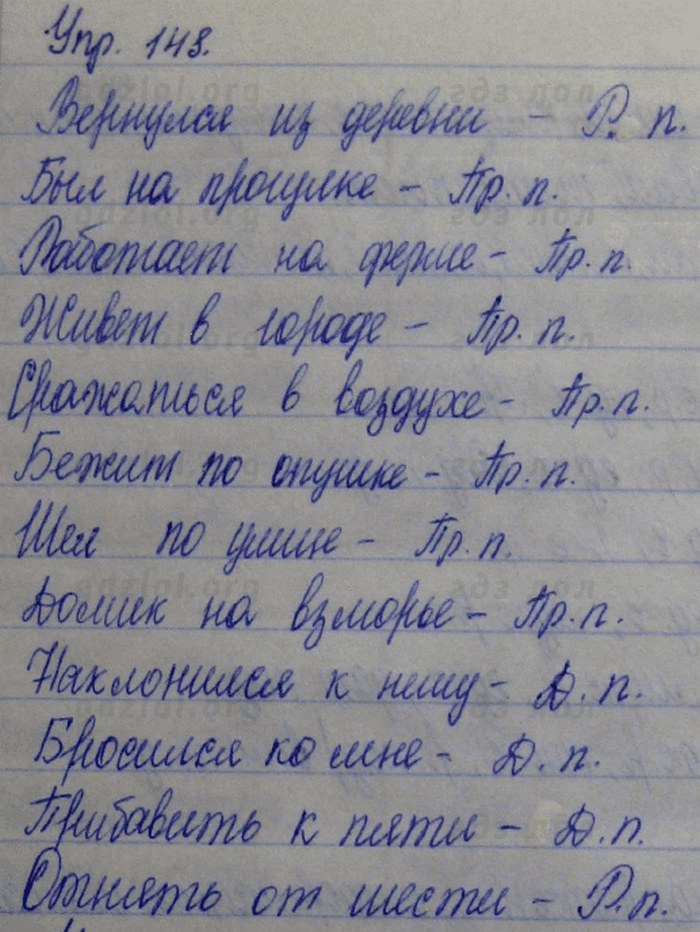 Упр. 148.
Вернулся из деревни - Р. п.
Был на прогулке - Пр. п.
Работает на ферме - Пр. п.
Живет в городе - Пр. п.
Сражаться в воздухе - Пр. п.
Бежит по опушке - Пр. п.
Шел по улице - Пр. п.
Домик на взморье - Пр. п.
Наклонился к нему - Д. п.
Бросился ко мне - Д. п.
Прибавить к пяти - Д. п.
Отнять от шести - Р. п.